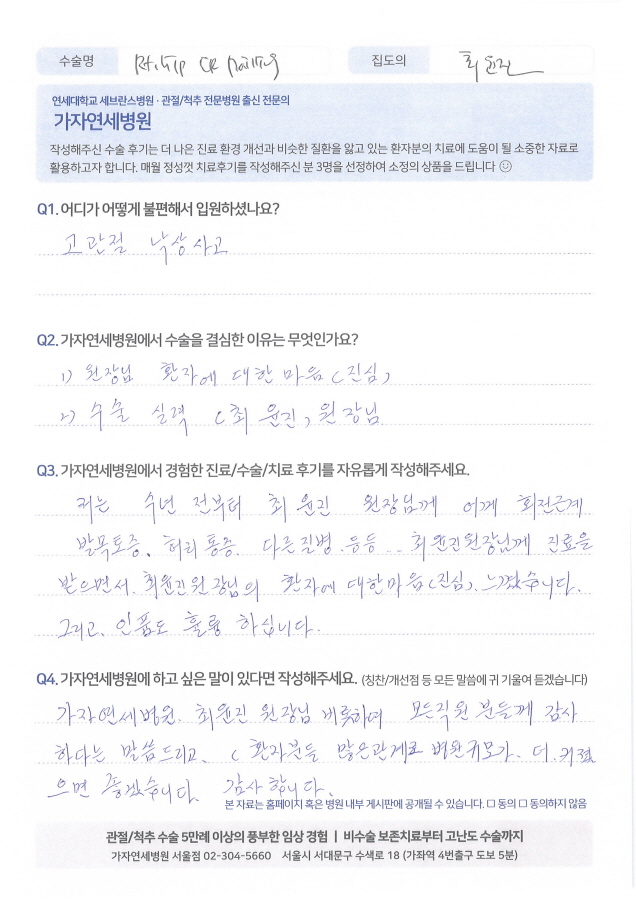 수술명 Rt. hip CR nailing 집도의 최윤진
연세대학교 세브란스병원 · 관절/척추 전문병원 출신 전문의
가자연세병원
작성해주신 수술 후기는 더 나은 진료 환경 개선과 비슷한 질환을 앓고 있는 환자분의 치료에 도움이 될 소중한 자료로
활용하고자 합니다. 매월 정성껏 치료후기를 작성해주신 분 3명을 선정하여 소정의 상품을 드립니다 ☺
Q1. 어디가 어떻게 불편해서 입원하셨나요?
고관절 낙상사고
Q2. 가자연세병원에서 수술을 결심한 이유는 무엇인가요?
1) 원장님 환자에 대한 마음 (진심)
2) 수술 실력 (최윤진) 원장님
Q3. 가자연세병원에서 경험한 진료/수술/치료 후기를 자유롭게 작성해주세요.
저는 수년 전부터 최윤진 원장님께 어께 회전근계
발목토증. 허리통증. 다른질병. 등등... 최윤진원장님께 진료을
받으면서. 최윤진원장님의 환자에 대한마음(진심). 느겼습니다.
그리고. 인품도 훌륭 하십니다.
Q4. 가자연세병원에 하고 싶은 말이 있다면 작성해주세요. (칭찬/개선점 등 모든 말씀에 귀 기울여 듣겠습니다)
가자연세병원. 최윤진 원장님 비롯하여 모든직원 분들께 감사
하다는 말씀드리고, ( 환자분들 많은관계로 병원규모가. 더. 커졌
으면 좋겠습니다. 감사 합니다.
본 자료는 홈페이지 혹은 병원 내부 게시판에 공개될 수 있습니다. □ 동의 □ 동의하지 않음
관절/척추 수술 5만례 이상의 풍부한 임상 경험 | 비수술 보존치료부터 고난도 수술까지
가자연세병원 서울점 02-304-5660 서울시 서대문구 수색로 18 (가좌역 4번출구 도보 5분)